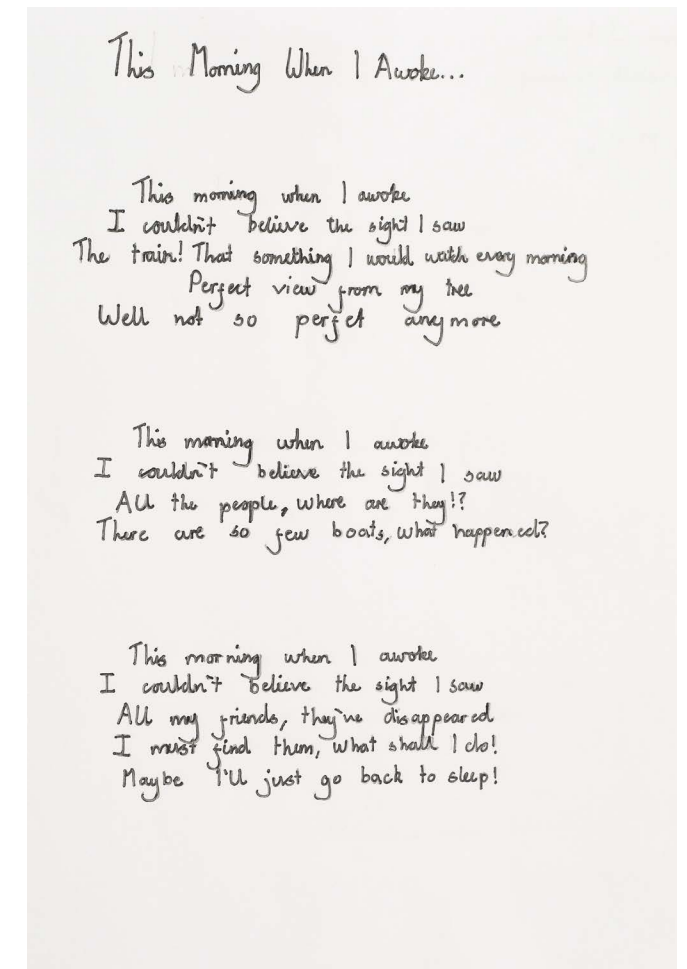 This Morning When I Awoke...
This morning when I awoke
I couldn't believe the sight I saw
The train! That something I would watch every morning
Perfect view from my tree
Well not so perfect anymore
This morning when I awoke
I couldn't believe the sight I saw
All the people, where are they!?
There are so few boats, what happened?
This morning when I awoke
I couldn't believe the sight I saw
All my friends, they've disappeared
I must find them, what shall I do!
Maybe I'll just go back to sleep!